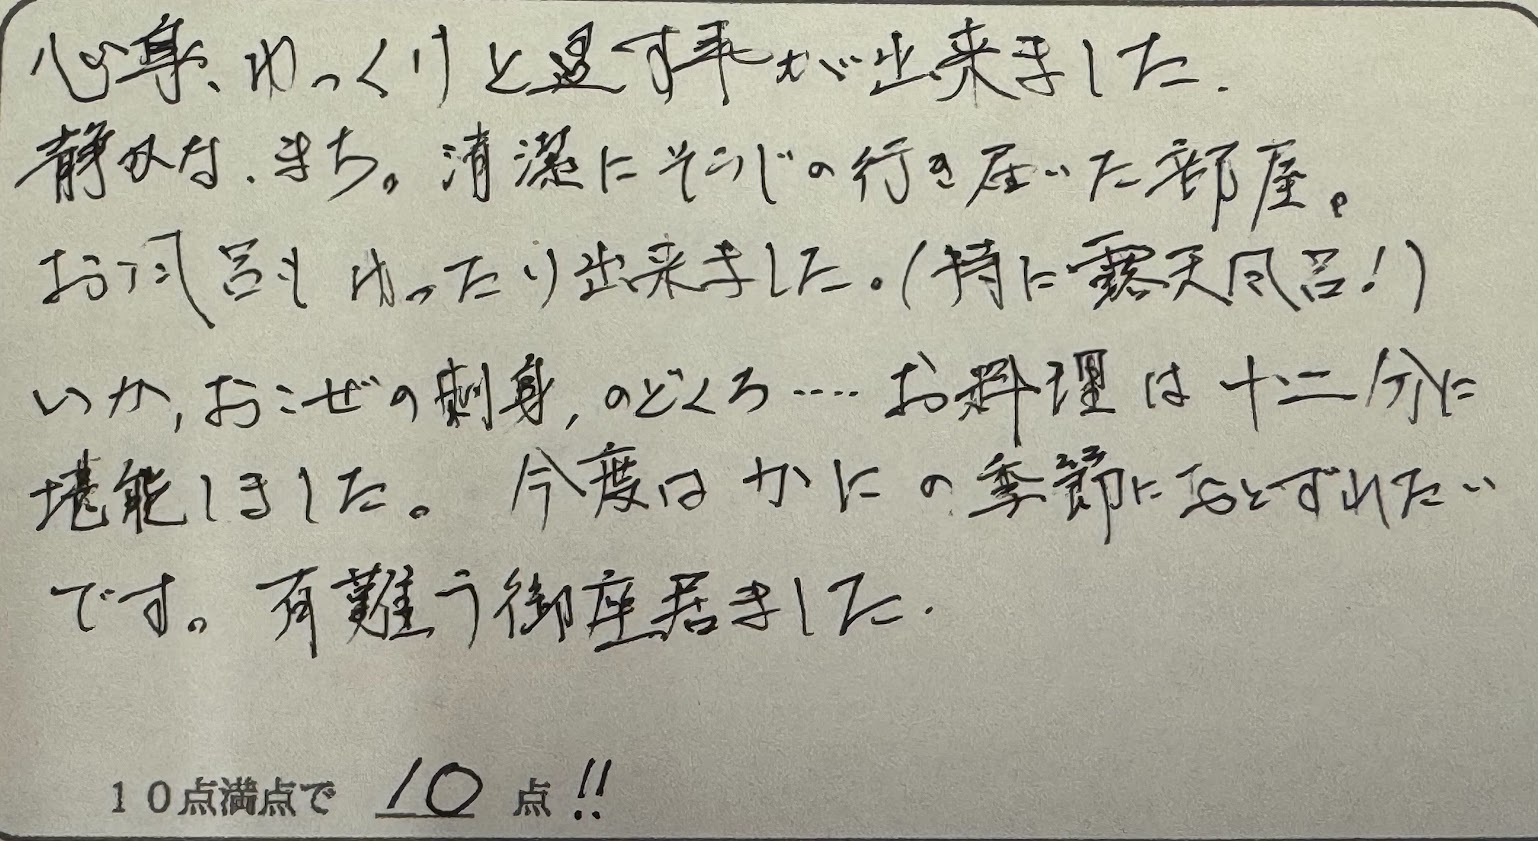 心身、ゆっくりと過す事が出来ました.
静かな、まち。清潔にそうじの行き届いた部屋。
お風呂もゆったり出来ました。(特に露天風呂!)
いか,おこぜの刺身,のどぐろ‥‥お料理は十二分に
堪能しました。今度はかにの季節におとずれたい
です。有難う御座居ました.
10点満点で 10 点!!